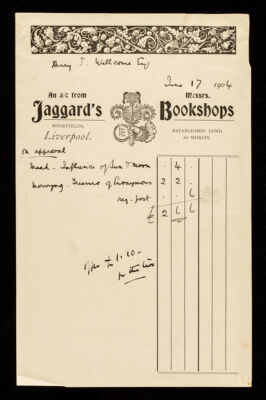 Henry S. Wellcome Esq
June 17 1904
An a/c from Messrs.
Jaggard's Bookshops
MOORFIELDS, ESTABLISHED LOND.
Liverpool. AD MDXCIV.
on approval
Mead. Influence of Sun & Moon . 4 .
Treasure of Euonymous 2 2 .
reg. post . . 6
£ 2 6 6
offer £1.10.-
for the two